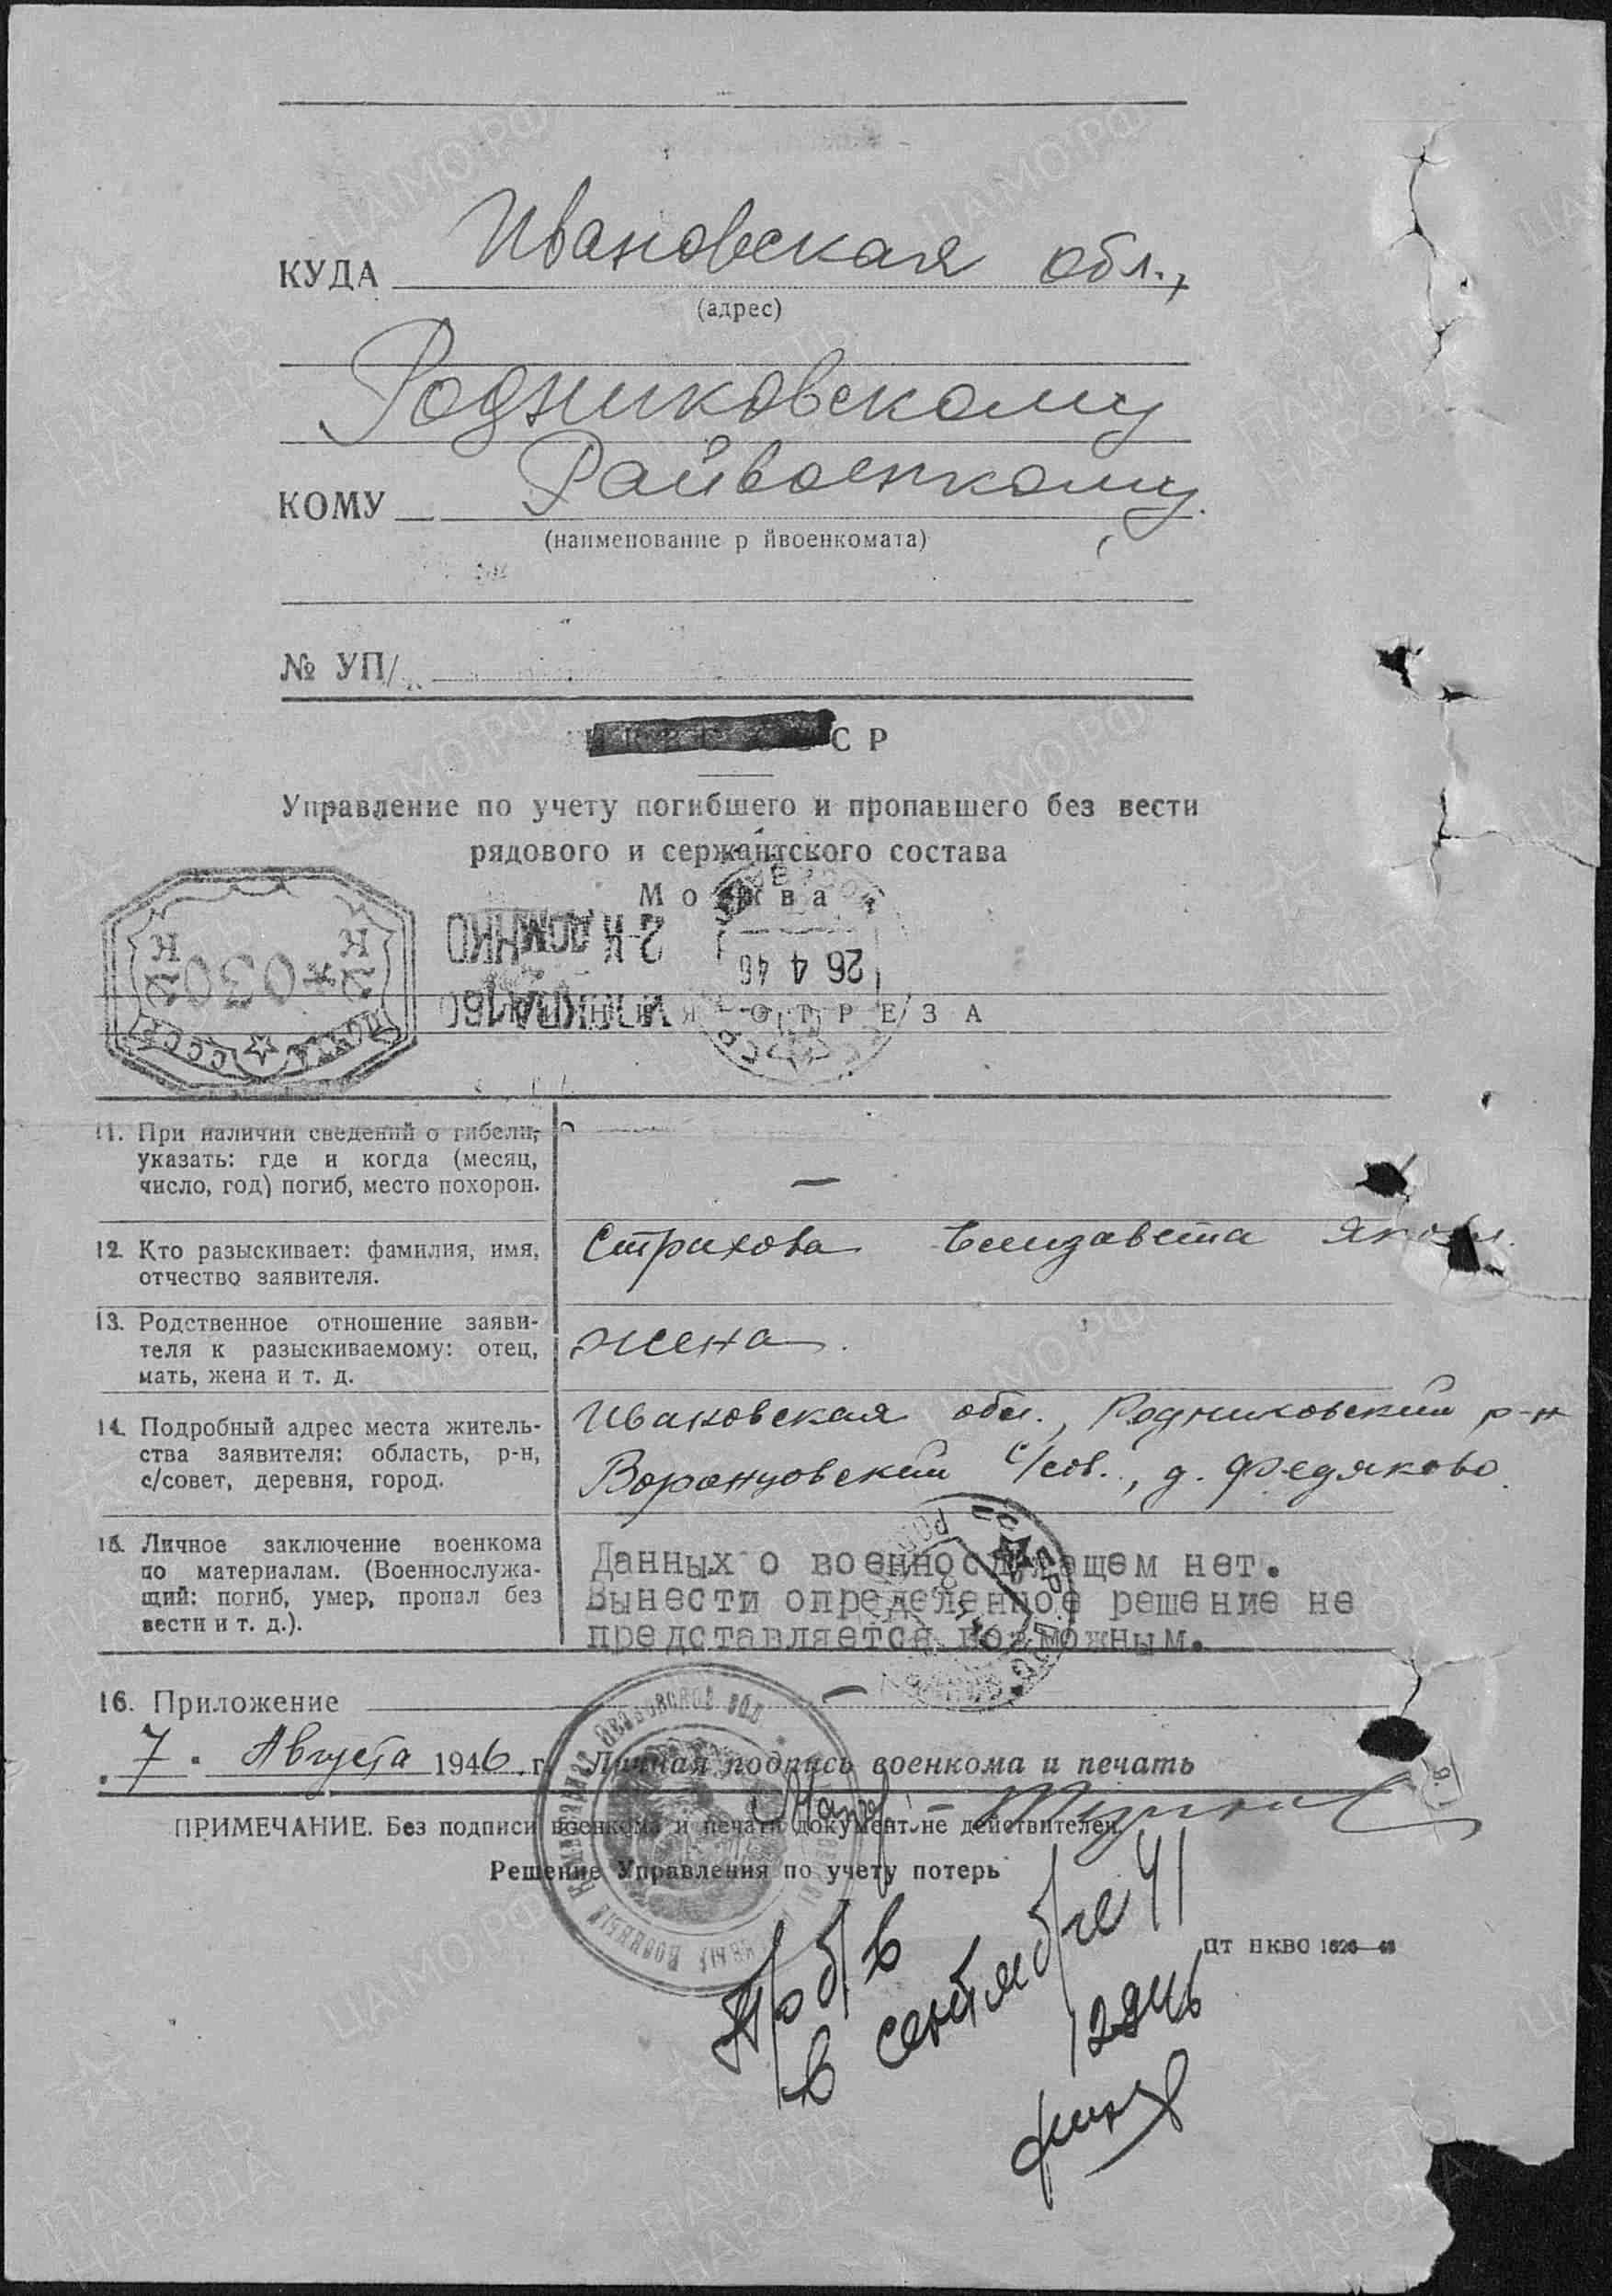 Ивановская обл.,
КУДА
(адрес)
Родниковскому
Райвоенкому
КОМУ
(наименование р йвоенкомата)
№ УП/
СР
Управление по учету погибшего и пропавшего без вести
рядового и сержантского состава
Москва
2-К ДОМ НКО
26 4 46
030
ОТРЕЗА
ПОЧТА СССР
11. При наличии сведений о гибели,
указать: где и когда (месяц,
число, год) погиб, место похорон.
—
12. Кто разыскивает: фамилия, имя,
отчество заявителя.
Страхова Елизавета
13. Родственное отношение заяви-
теля к разыскиваемому: отец,
мать, жена и т. д.
жена.
14. Подробный адрес места житель-
ства заявителя: область, р-н,
с/совет, деревня, город.
Ивановская обл., Родниковский р-н
Воронцовский с/сов., д. Федяково.
15. Личное заключение военкома
по материалам. (Военнослужа-
щий: погиб, умер, пропал без
вести и т. д.).
Данных о военнослужащем нет.
Вынести определенное решение не
представляется возможным.
16. Приложение —
7. Августа 1946. г. Личная подпись военкома и печать
ПРИМЕЧАНИЕ. Без подписи военкома и печати документ не действителен.
Решение Управления по учету потерь
пр б/в
в сентябре 41
ЦТ НКВС 1626—46